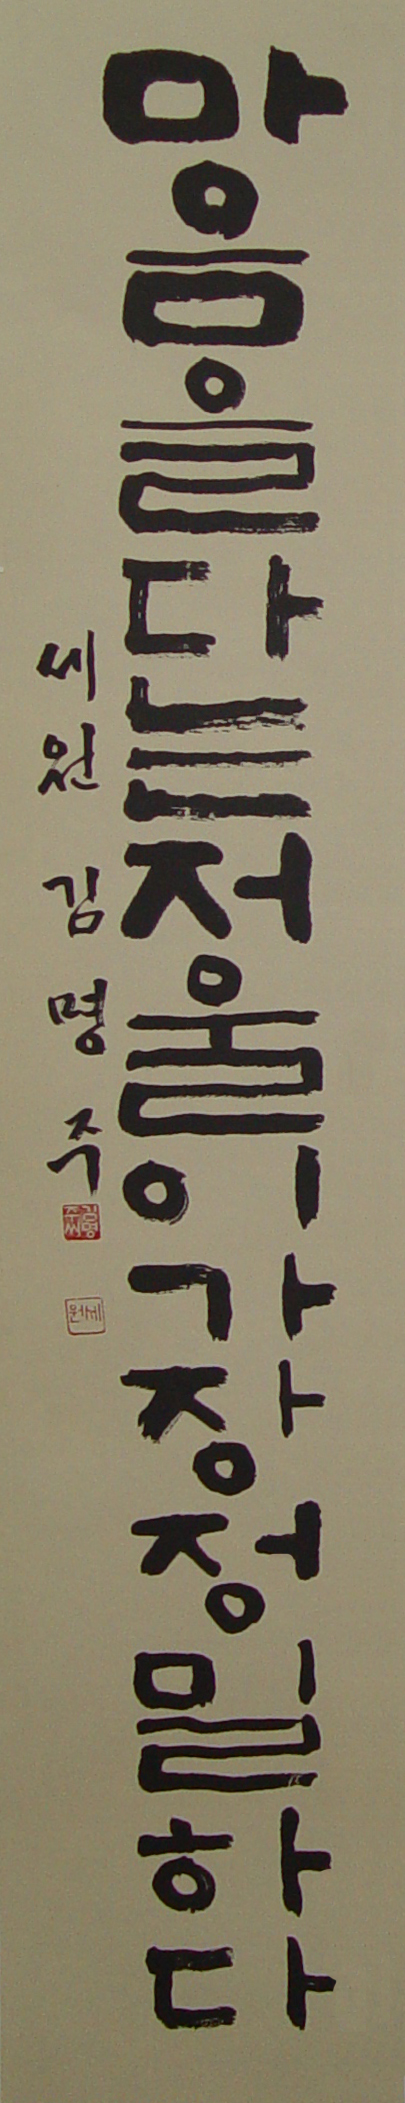 마음을다는저울이가장정밀하다
세원 김명주
세원